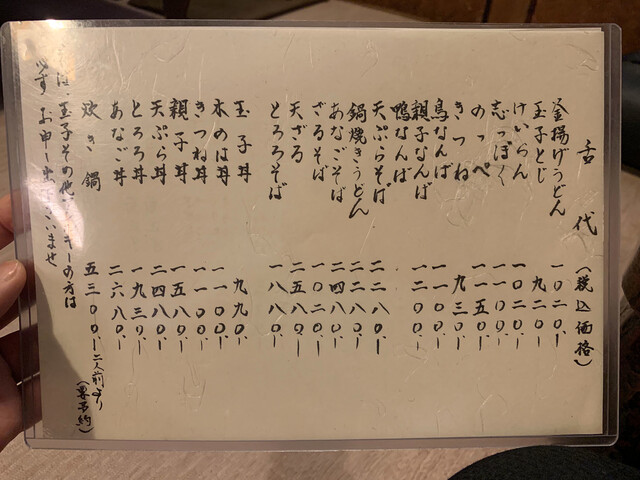 舌代 (税込価格)
釜揚げうどん 一〇二〇.-
玉子とじ 九二〇.-
けいらん 一〇二〇.-
志っぽく 一一〇〇.-
のっぺ 一一五〇.-
きつね 九三〇.-
鳥なんば 一一〇〇.-
親子なんば 一二〇〇.-
鴨なんば
天ぷらそば 二二八〇.-
鍋焼きうどん 二二八〇.-
あなごそば 二四八〇.-
ざるそば 一〇二〇.-
天ざる 二五八〇.-
とろろそば 一八八〇.-
玉子丼 九九〇.-
木のは丼 一一〇〇.-
きつね丼 一一〇〇.-
親子丼 一五八〇.-
天ぷら丼 二四八〇.-
とろろ丼 一九三〇.-
あなご丼 二六八〇.-
炊き鍋 五三〇〇.- 二人前より (要予約)
玉子その他 の方は
必ずお申し出下さいませ